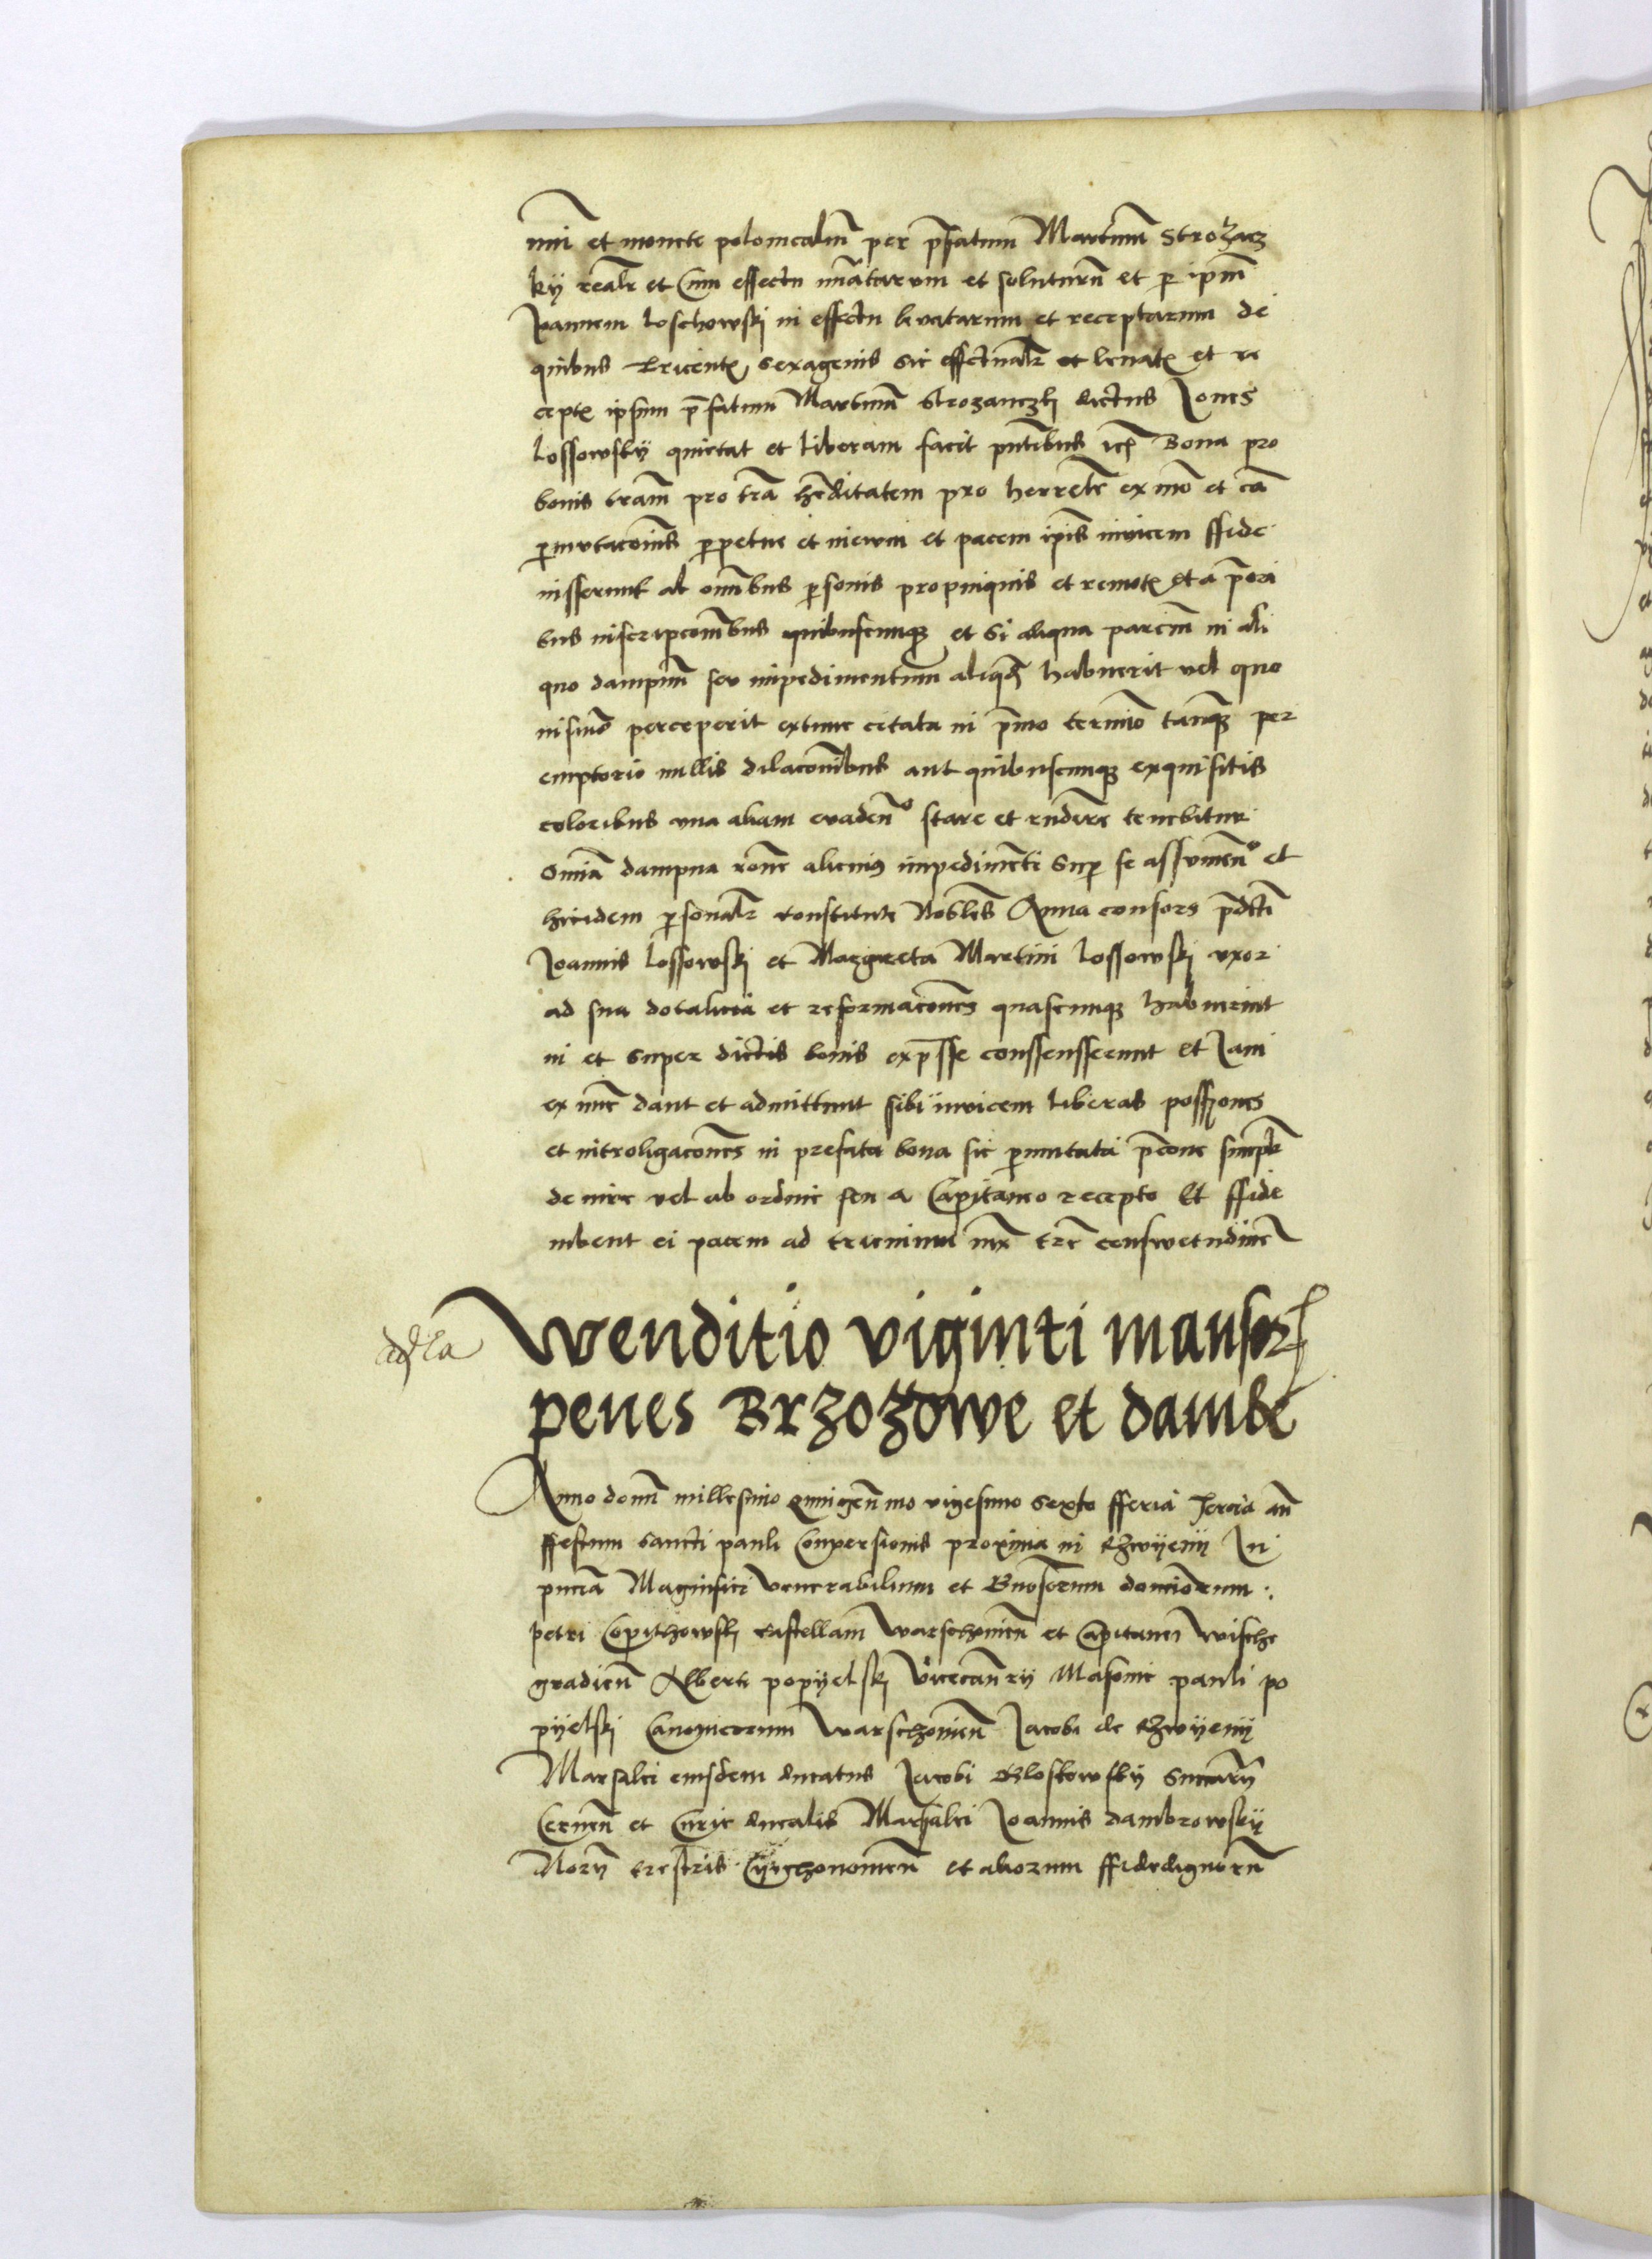 mi et monete polonicalium per prefatum Martinum Strozacz
ky realr et Cum effectu nuatarum et solutarum et per ipm
Joannem Loschowski in effectu levatarum et receptarum de
quibus tricentis sexagenis sic effectualr et levatis et re
ceptis ipsum prefatum Martinum Strozanczki dictus Joannes
Lossowsky quietat et liberam facit pntibus Bona pro
bonis terram pro tra hereditatem pro herrete ex
permutaconis perpetue et inewm et pacem ipis invicem ffide
iusserunt ab omnibus personis propinquis et remotis et a priori
bus inscripconibus quibuscunque et si aliqua parcium in ali
quo dampnum seu impedimentum aliquod habuerit vel quo
nismo perceperit extunc citata in primo termino tanquam per
emptorio nullis dilaconibus aut quibuscunque exquisitis
coloribus una aliam evaden stare et rndere tenebitur
Omnia dampna rone alicuius impedimenti super se assumen et
hic ibidem personalr constitute Nobiles Anna consors predicti
Joannis Lossowski et Margareta Martini Lossowski uxor
ad sua dotalicia et reformacones quascunque habuerint
in et super dictis bonis expresse conssensserunt et Jam
ex nunc dant et admittunt sibi invicem liberas possessiones
et intro ligacones in prefata bona sic permutata simplr
de iure vel ab ordine seu a Capitaneo recepto Et ffide
iubent ei pacem ad triennium iux tre conswetudine
Wenditio viginti mansor
adCa
penes Brzozowe et dambe
Anno domi millesimo quingenmo vigesimo sexto fferia Tercia an
ffestum sancti pauli Conversionis proxima in Rzwyenij In
pncia Magnifici Venerabilium et Gnosorum dominorum
petri Copithowski Castellani Warschovien et Capitanei Wische
gradien Alberti popyelski Vicecanrij Masovie pauli po
pyelski Canonicorum Warschovien Jacobi de Rzwyenij
Marsalci eiusdem ducatus Jacobi Gloskowsky Succarij
Cernen et Curie ducalis Marsalci Joannis dambrowskij
Norij trestris Cyechonomen et aliorum ffidedignorum